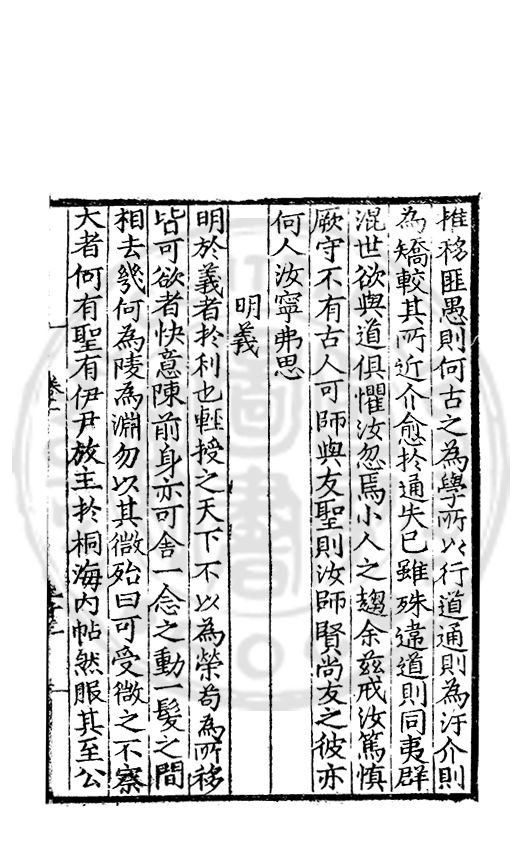 推移匪愚則何古之為學所以行道通則為汙介則
為矯較其所近介愈扵通失已雖殊違道則同夷群
混世欲與道俱懼汝忽焉小人之趨余茲戒汝篤慎
厥守不有古人可師與友聖則汝師賢尚友之彼亦
何人汝寧弗思
明義
明於義者扵利也輕授之天下不以為榮苟為所移
皆可欲者快意陳前身亦可舍一念之動一髮之間
相去幾何為陵為淵勿以其微殆曰可受微之不察
大者何有聖有伊尹放主扵桐海内帖然服其至公